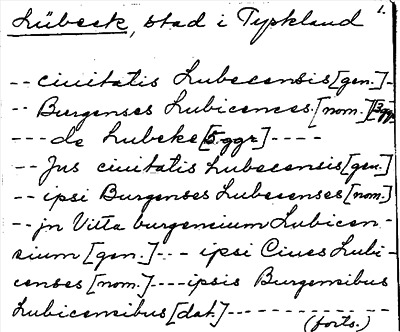 1.
Lübeck, stad i Tyskland
-- ciuitatis Lubecensis [gen.] -
-- Burgenses Lubicences [nom.] [3 ggr]
--- de Lubeke [5 ggr] ----
-- Jus ciuitatis Lubecensis [gen.]
-- ipsi Burgenses Lubecenses [nom.]
-- jn Villa burgensium Lubicen-
sium [gen.] --- ipsi Ciues Lubi-
censes [nom.] ---- ipsis Burgensibus
Lubicensibus [dat.] -----------
(forts.)